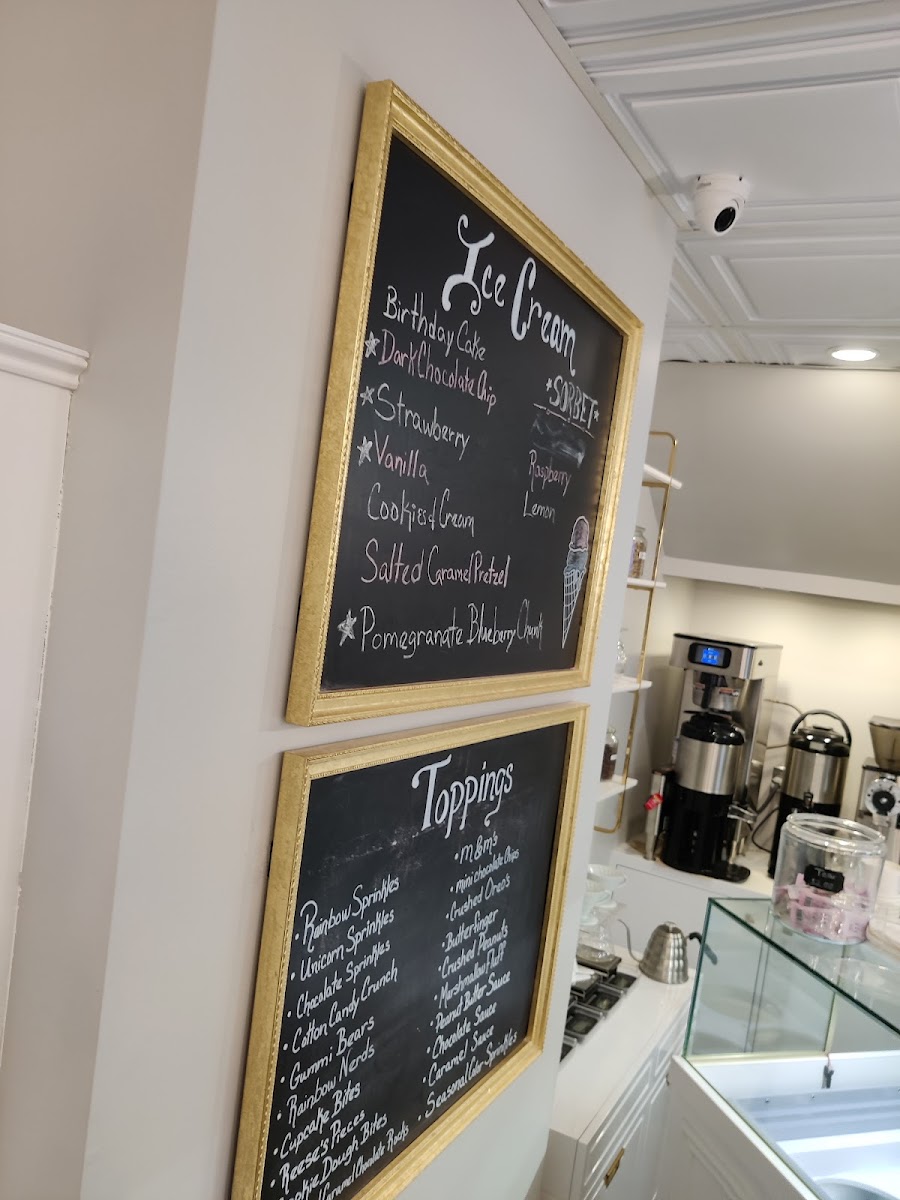 Ice Cream
Birthday Cake
Dark Chocolate Chip
Strawberry
Vanilla
Cookies & Cream
Salted Caramel Pretzel
Pomegranate Blueberry Chunk
*SORBET*
Raspberry
Lemon
Toppings
• Rainbow Sprinkles
• Unicorn Sprinkles
• Chocolate Sprinkles
• Cotton Candy Crunch
• Gummi Bears
• Rainbow Nerds
• Cupcake Bites
• Reese's Pieces
Cookie Dough Bites
Caramel Chocolate Rocks
• M&M's
• mini chocolate chips
• Crushed Oreo's
• Butterfinger
• Crushed Peanuts
• Marshmallow Fluff
• Peanut Butter Sauce
• Chocolate Sauce
• Caramel Sauce
• Seasonal Color Sprinkles